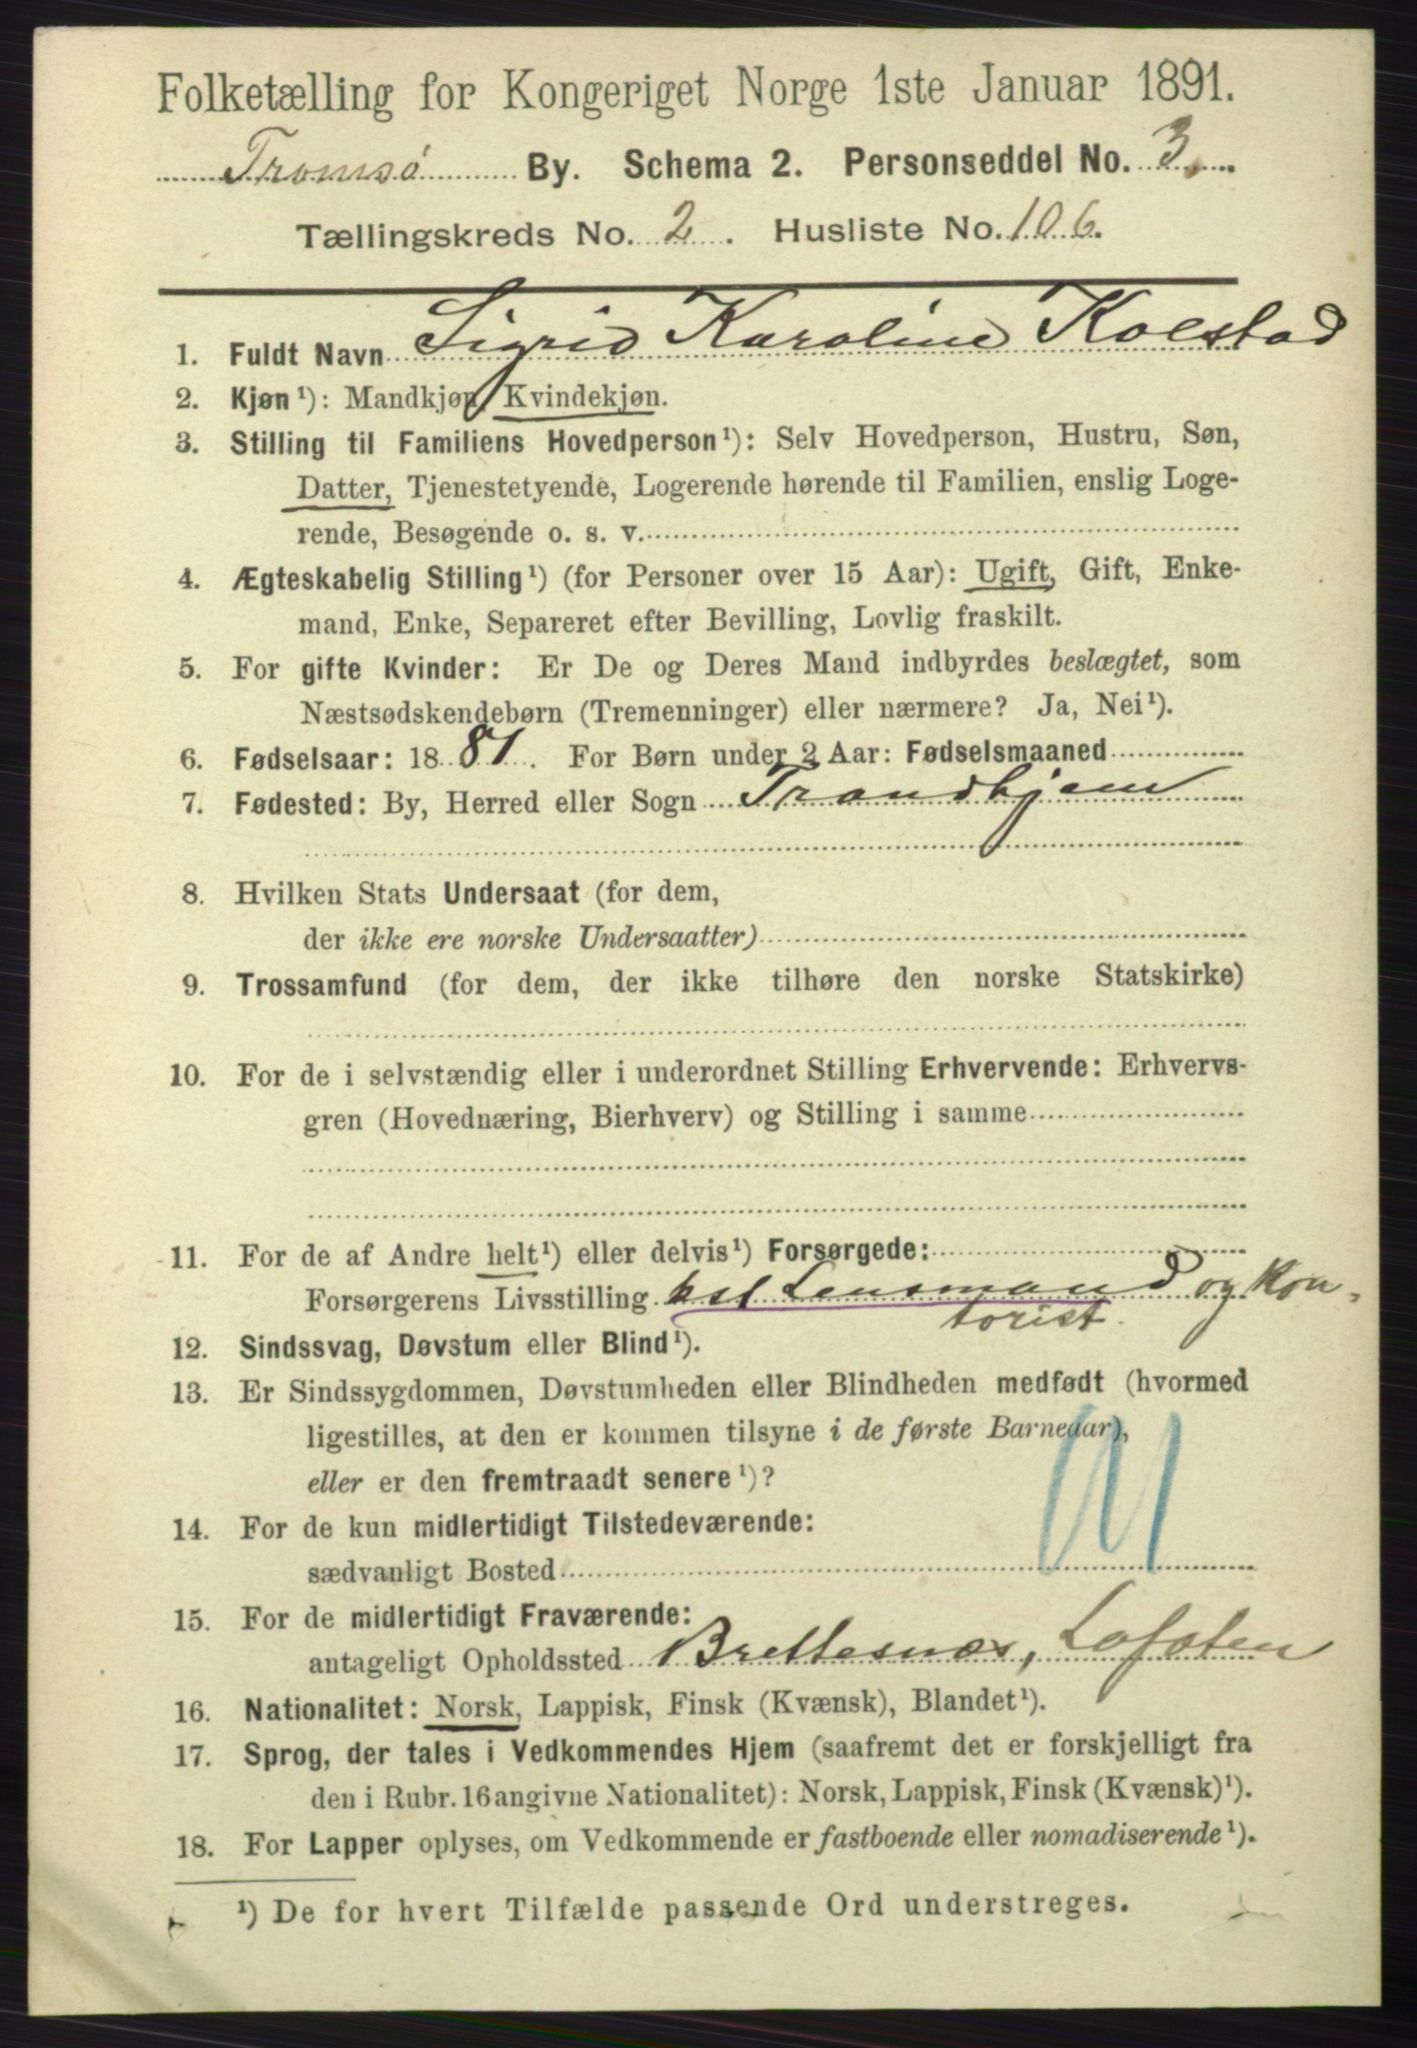 Folketælling for Kongeriget Norge 1ste Januar 1891.
Tromsø By. Schema 2. Personseddel No. 3.
Tællingskreds No. 2. Husliste No. 106.
1. Fuldt Navn Sigrid Karoline Kolstad
2. Kjøn ¹): Mandkjøn, Kvindekjøn.
3. Stilling til Familiens Hovedperson ¹): Selv Hovedperson, Hustru, Søn,
Datter, Tjenestetyende, Logerende hørende til Familien, enslig Loge-
rende, Besøgende o. s. v.
4. Ægteskabelig Stilling ¹) (for Personer over 15 Aar): Ugift, Gift, Enke-
mand, Enke, Separeret efter Bevilling, Lovlig fraskilt.
5. For gifte Kvinder: Er De og Deres Mand indbyrdes beslægtet, som
Næstsødskendebørn (Tremenninger) eller nærmere? Ja, Nei ¹).
6. Fødselsaar: 1881. For Børn under 2 Aar: Fødselsmaaned
7. Fødested: By, Herred eller Sogn Trondhjem
8. Hvilken Stats Undersaat (for dem,
der ikke ere norske Undersaatter)
9. Trossamfund (for dem, der ikke tilhøre den norske Statskirke)
10. For de i selvstændig eller i underordnet Stilling Erhvervende: Erhvervs-
gren (Hovednæring, Bierhverv) og Stilling i samme
11. For de af Andre helt ¹) eller delvis ¹) Forsørgede:
Forsørgerens Livsstilling Lensmand og Kon-
torist.
12. Sindssvag, Døvstum eller Blind ¹).
13. Er Sindssygdommen, Døvstumheden eller Blindheden medfødt (hvormed
ligestilles, at den er kommen tilsyne i de første Barneaar),
eller er den fremtraadt senere ¹)?
14. For de kun midlertidigt Tilstedeværende:
sædvanligt Bosted
15. For de midlertidigt Fraværende:
antageligt Opholdssted Brettesnæs, Lofoten
16. Nationalitet: Norsk, Lappisk, Finsk (Kvænsk), Blandet ¹).
17. Sprog, der tales i Vedkommendes Hjem (saafremt det er forskjelligt fra
den i Rubr. 16 angivne Nationalitet): Norsk, Lappisk, Finsk (Kvænsk) ¹).
18. For Lapper oplyses, om Vedkommende er fastboende eller nomadiserende ¹).
¹) De for hvert Tilfælde passende Ord understreges.